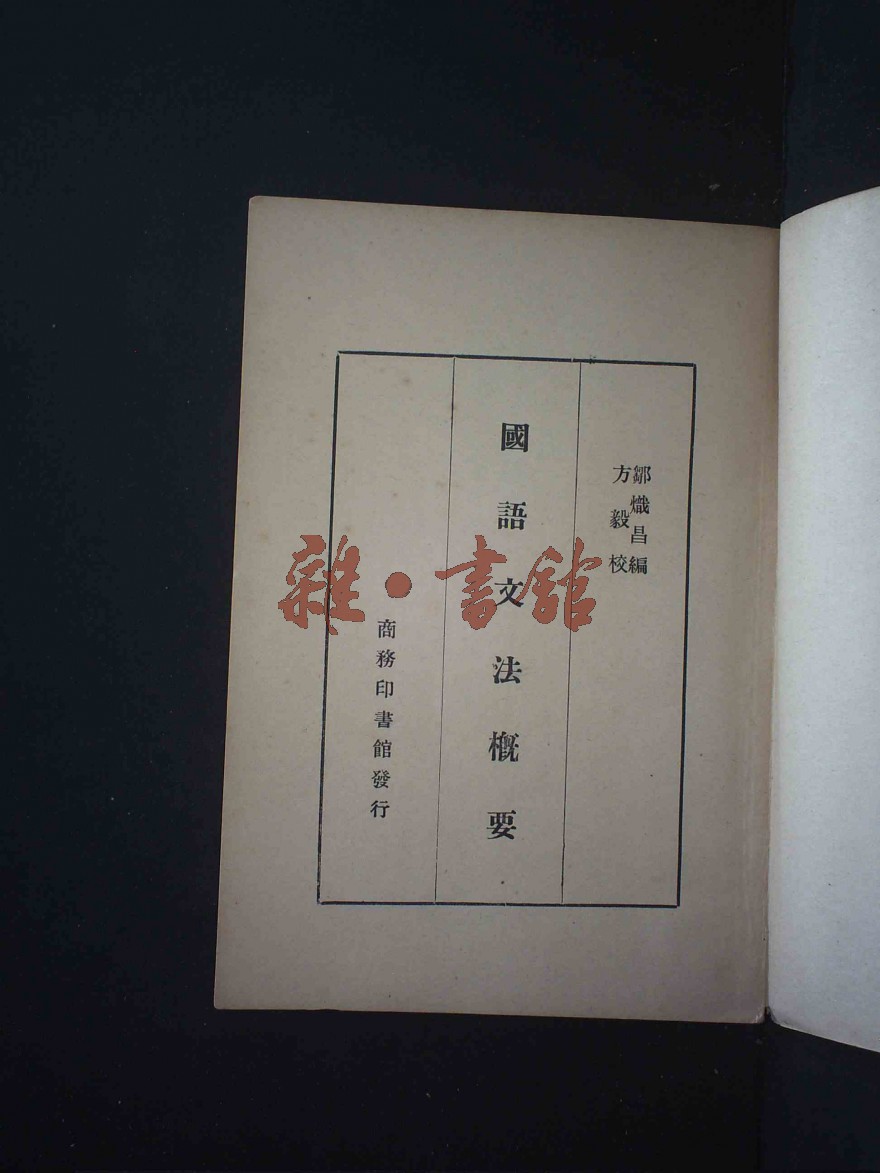 鄒熾昌編
方毅校
國語文法概要
商務印書館發行
雜·書館